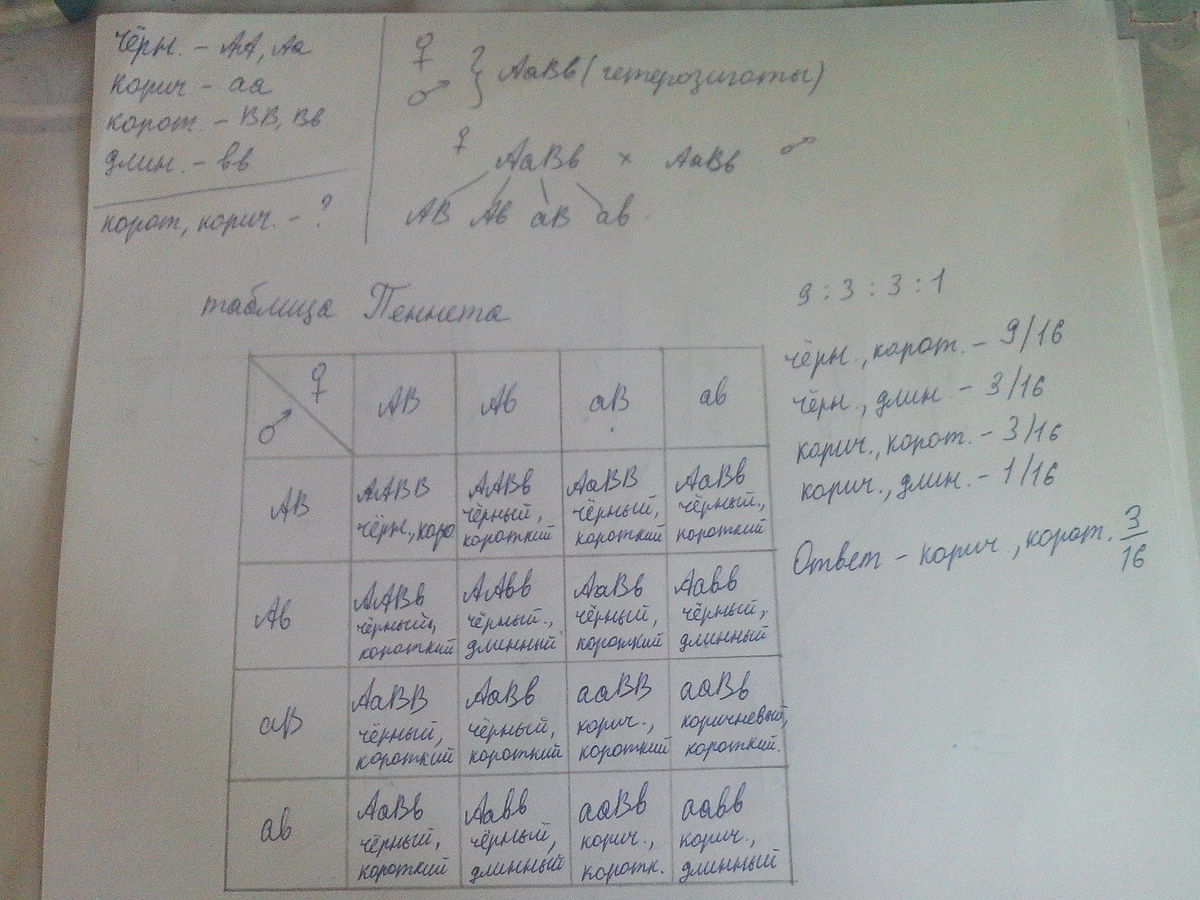 чёрн. - АА, Аа
корич - аа
корот. - ВВ, Вв
длин. - вв
корот, корич. - ?
♀
♂ { АаВв (гетерозиготы)
♀ АаВв × АаВв ♂
АВ Ав аВ ав
таблица Пеннета
♂ ♀ АВ Ав аВ ав
АВ
ААВВ чёрн, коро
ААВв чёрный, короткий
АаВВ чёрный, короткий
АаВв чёрный, короткий
Ав
ААВв чёрный, короткий
ААвв чёрный., длинный.
АаВв чёрный, короткий
Аавв чёрный, длинный
аВ
АаВВ чёрный, короткий
АаВв чёрный, короткий
ааВВ корич., короткий
ааВв коричневый, короткий.
ав
АаВв чёрный, короткий
Аавв чёрный, длинный
ааВв корич., коротк.
аавв корич., длинный
9 : 3 : 3 : 1
чёрн., корот. - 9/16
чёрн., длин. - 3/16
корич., корот. - 3/16
корич., длин. - 1/16
Ответ - корич, корот. 3/16